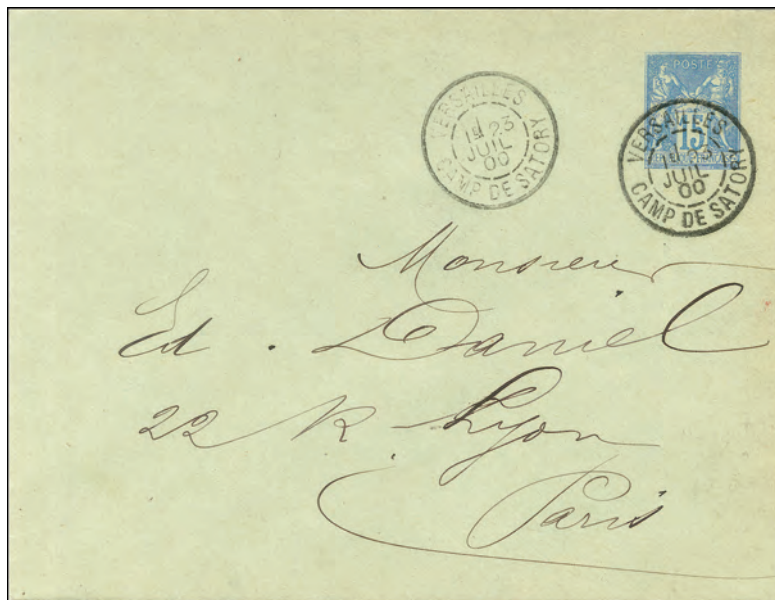 VERSAILLES
1E 23
JUIL
00
CAMP DE SATORY
POSTE
15
VERSAILLES
1E 23
JUIL
00
CAMP DE SATORY
Monsieur
Ed. Daniel
22 R. Lyon
Paris